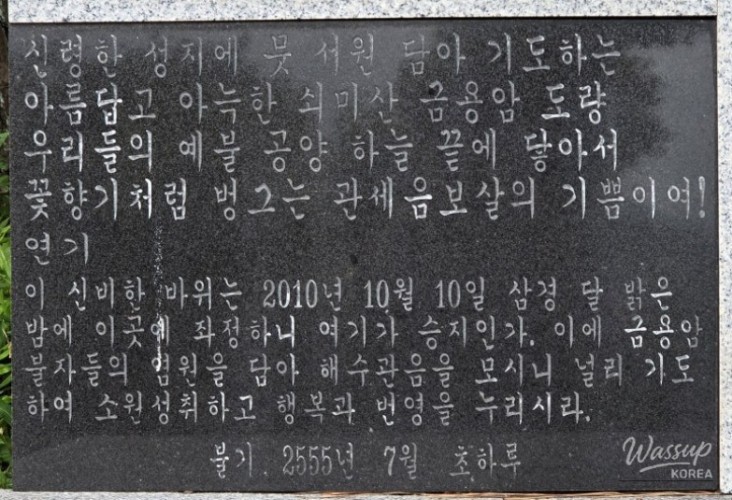 신령한 성지에 뭇 서원 담아 기도하는
아름답고 아늑한 쇠미산 금용암 도량
우리들의 예불 공양 하늘 끝에 닿아서
꽃향기처럼 벙그는 관세음보살의 기쁨이여!
연기
이 신비한 바위는 2010년 10월 10일 삼경 달 밝은
밤에 이곳에 좌정하니 여기가 승지인가. 이에 금용암
불자들의 염원을 담아 해수관음을 모시니 널리 기도
하여 소원성취하고 행복과 번영을 누리시라.
불기. 2555년 7월 초하루
Wassup
KOREA